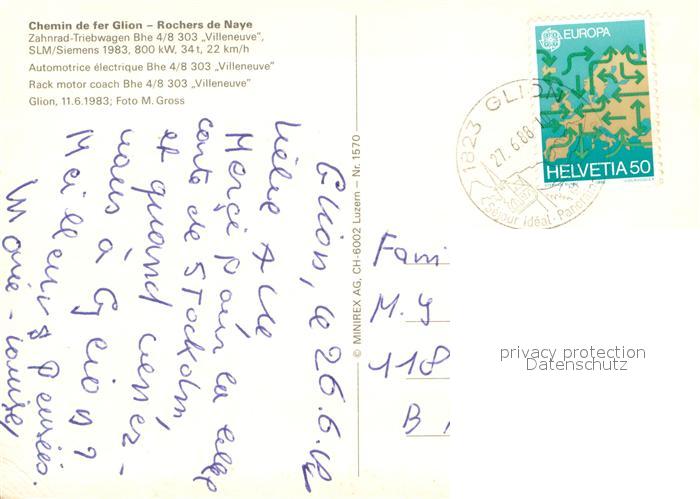 Chemin de fer Glion – Rochers de Naye
Zahnrad-Triebwagen Bhe 4/8 303 „Villeneuve",
SLM/Siemens 1983, 800 kW, 34 t, 22 km/h
Automotrice électrique Bhe 4/8 303 „Villeneuve"
Rack motor coach Bhe 4/8 303 „Villeneuve"
Glion, 11.6.1983; Foto M. Gross
© MINIREX AG, CH-6002 Luzern – Nr. 1570
EUROPA
HELVETIA 50
1823 GLION
27.6.88
Séjour idéal - Panor
Glion, le 26.6.
Merci pour la
carte de Stockolm,
et quand venez-
vous à Glion?
Meilleures Pensées.
Marie-Louise,
Fam
M. G
118
B
privacy protection
Datenschutz